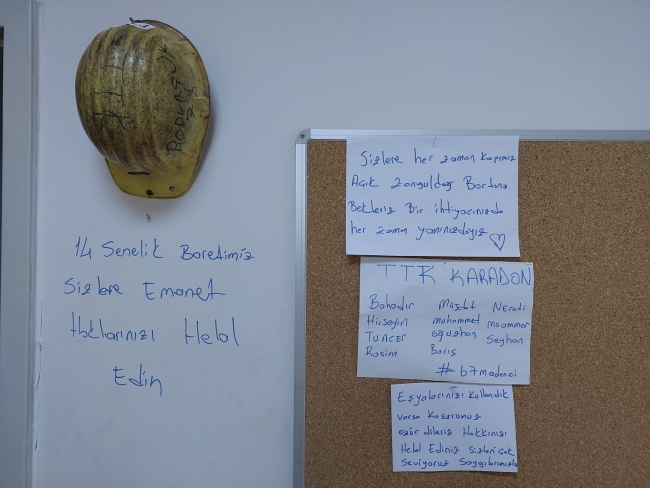 BODURTUK
14 Senelik Baretimiz
Sizlere Emanet
Haklarınızı Helal
Edin
Sizlere her zaman kapımız
Açık Zonguldağ Bartına
Bekleriz Bir ihtiyacınızda
her zaman yanınızdayız
TTK KARADON
Bahadır Müjdt Necati
Hüseyin muhammed muammer
TUNCER oğuzhan Seyhan
Rasim Barış
#67madenci
Eşyalarınızı Kullandık
Varsa Kusurumuz
özür dileriz Hakkınızı
Helal Ediniz Sizleri Çok
Seviyoruz Saygılarımızla